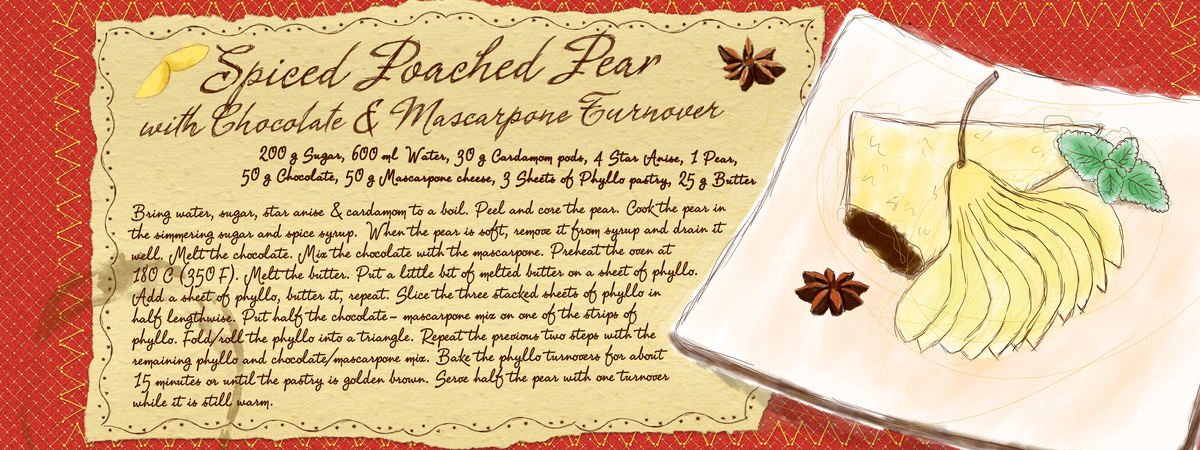 Spiced Poached Pear
with Chocolate & Mascarpone Turnover
200 g Sugar, 600 ml Water, 30 g Cardamom pods, 4 Star Anise, 1 Pear,
50 g Chocolate, 50 g Mascarpone cheese, 3 Sheets of Phyllo pastry, 25 g Butter
Bring water, sugar, star anise & cardamom to a boil. Peel and core the pear. Cook the pear in
the simmering sugar and spice syrup. When the pear is soft, remove it from syrup and drain it
well. Melt the chocolate. Mix the chocolate with the mascarpone. Preheat the oven at
180 C (350 F). Melt the butter. Put a little bit of melted butter on a sheet of phyllo.
Add a sheet of phyllo, butter it, repeat. Slice the three stacked sheets of phyllo in
half lengthwise. Put half the chocolate- mascarpone mix on one of the strips of
phyllo. Fold/roll the phyllo into a triangle. Repeat the previous two steps with the
remaining phyllo and chocolate/mascarpone mix. Bake the phyllo turnovers for about
15 minutes or until the pastry is golden brown. Serve half the pear with one turnover
while it is still warm.